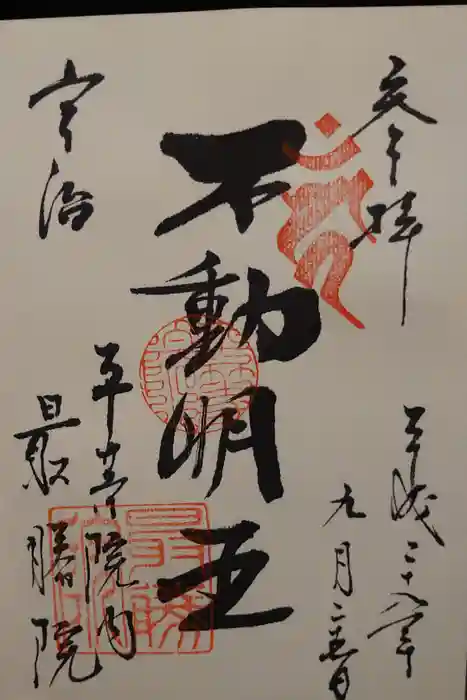 奉拝
平成二十八年
九月二十五日
不動明王
宇治
平等院内
最勝院